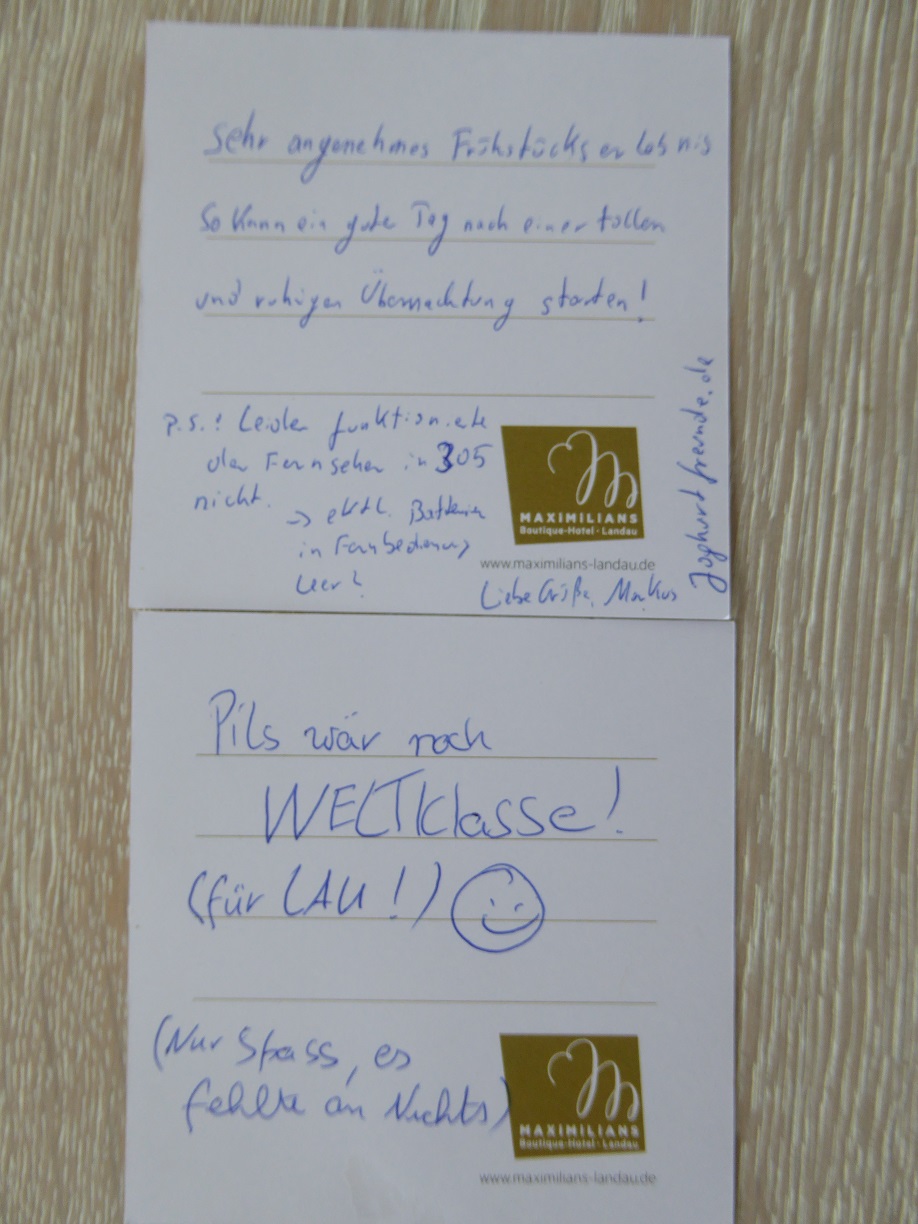 Sehr angenehmes Frühstückserlebnis
So kann ein gute Tag nach einer tollen
und ruhigen Übernachtung starten!
P.S.: Leider funktionierte
der Fernseher in 305
nicht.
-> evtl. Batterien
in Fernbedienung
leer?
MAXIMILIANS
Boutique-Hotel · Landau
www.maximilians-landau.de
Liebe Grüße, Markus
Joghurtfreunde.de
Pils wär noch
WELTKlasse!
(für LAU!)
(Nur Spass, es
fehlte an Nichts)
MAXIMILIANS
Boutique-Hotel · Landau
www.maximilians-landau.de